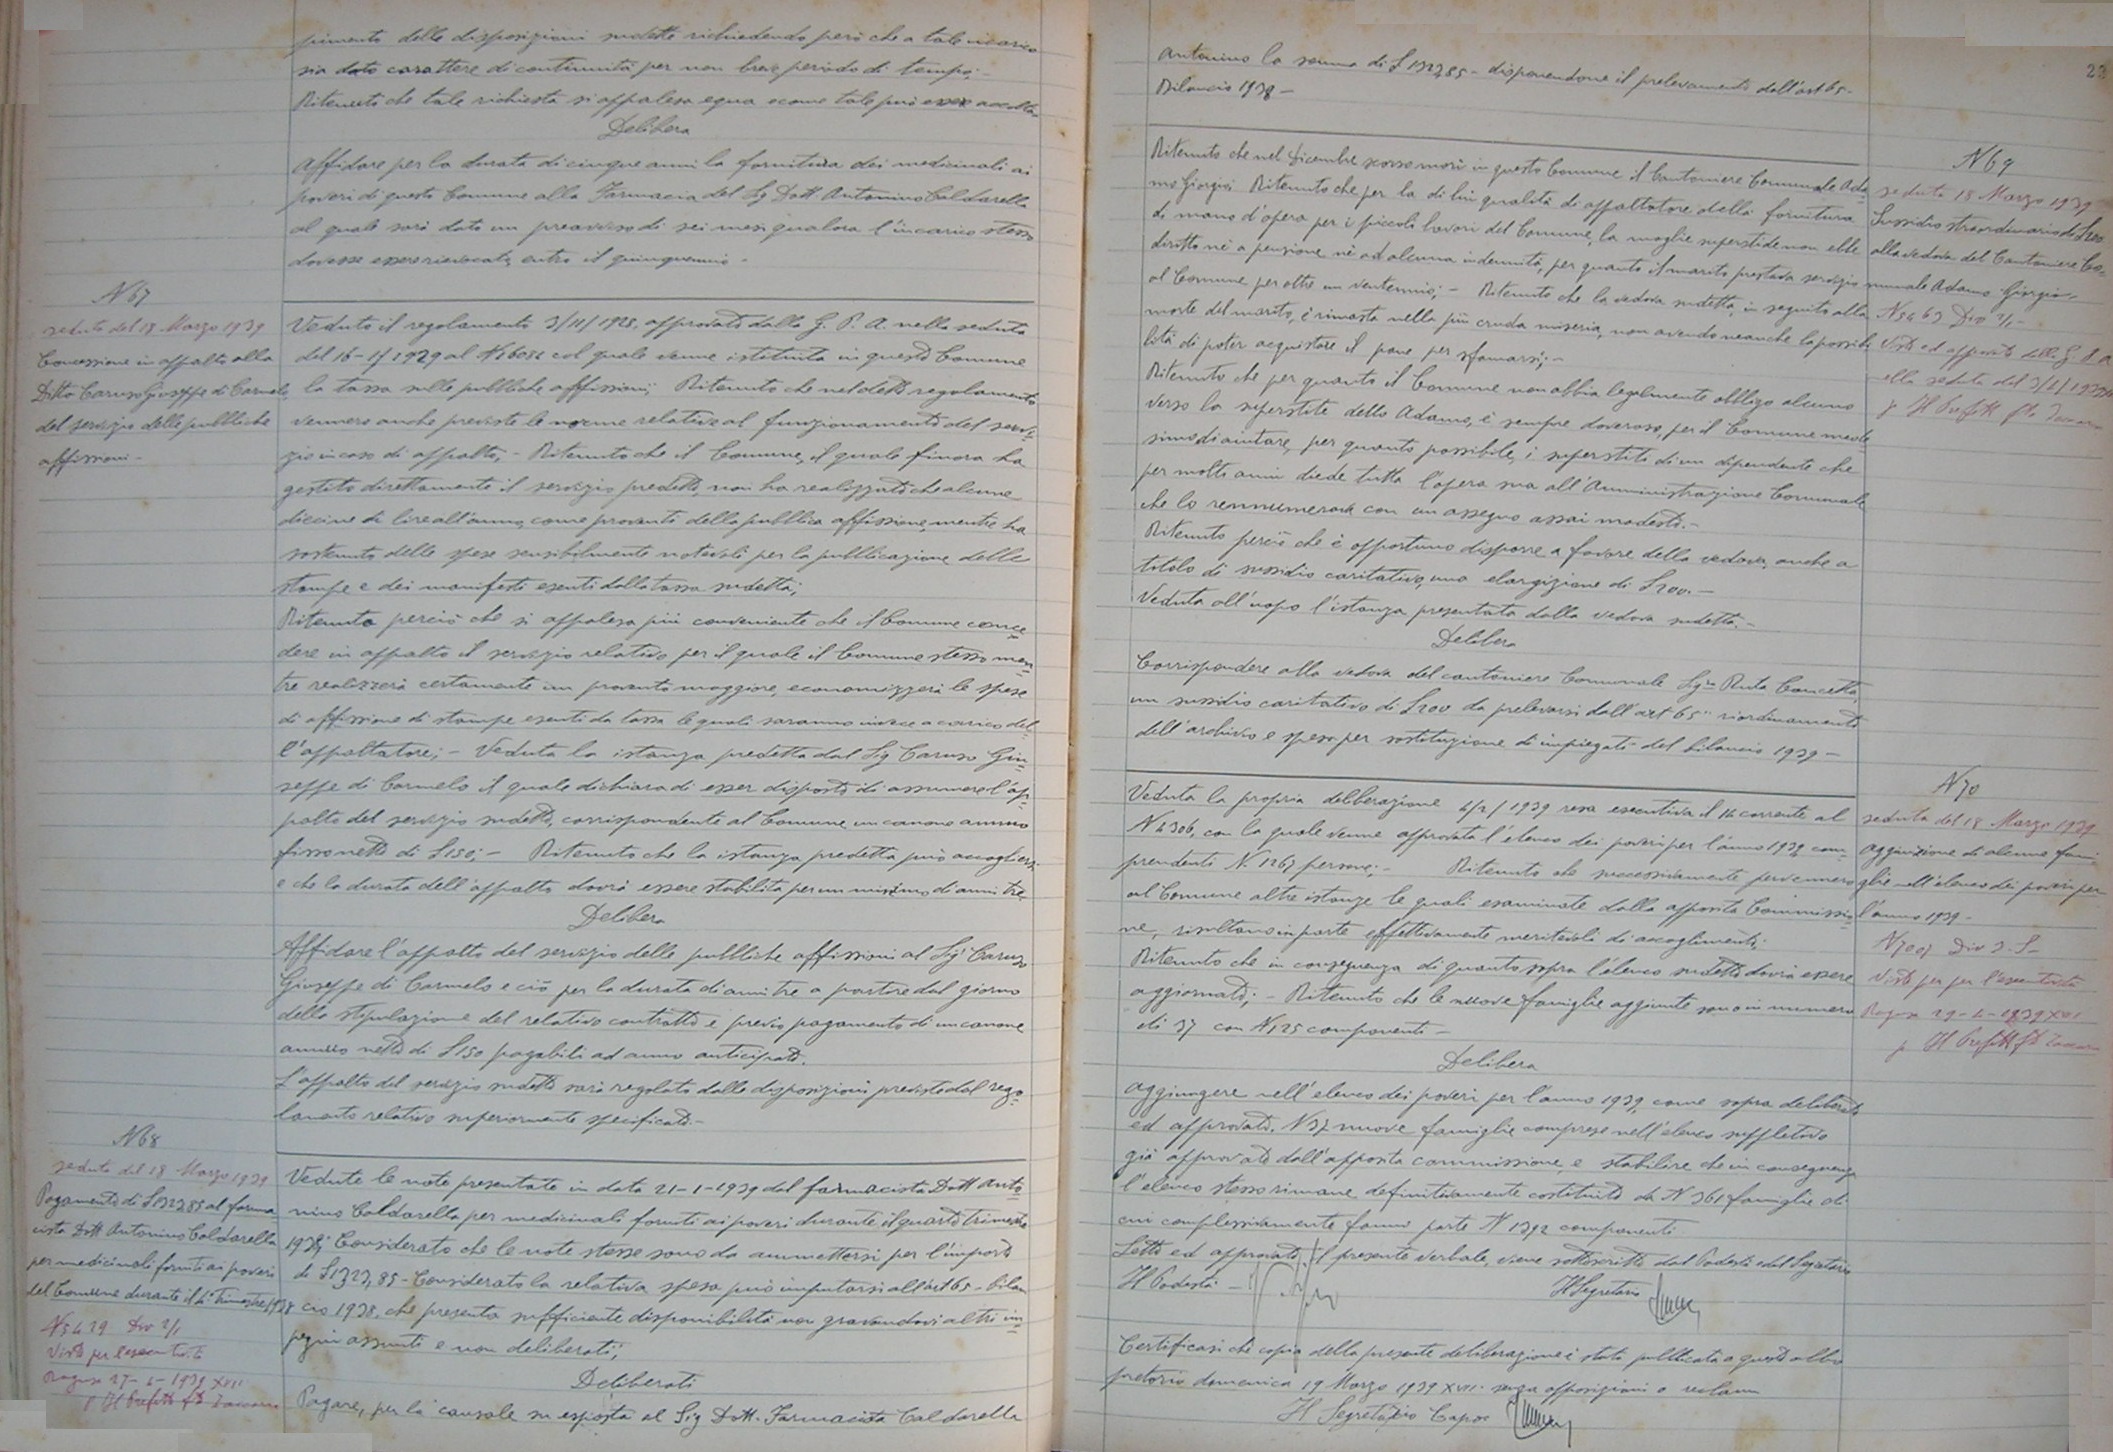 pimento delle disposizioni sudette richiedendo però che a tale incarico
sia dato carattere di continuità per non breve periodo di tempo.-
Ritenuto che tale richiesta si appalesa equa e come tale può essere accolta
Delibera
Affidare per la durata di cinque anni la fornitura dei medicinali ai
poveri di questo Comune alla Farmacia del Sig Dott Antonino Caldarella
al quale sarà dato un preavviso di sei mesi qualora l'incarico stesso
dovesse essere revocato entro il quinquennio.
N 67
seduta del 18 Marzo 1939
Concessione in appalto alla
Ditta Caruso Giuseppe di Carmelo
del servizio delle pubbliche
affissioni -
Veduto il regolamento 3/11/1928, approvato dalla G. P. A. nella seduta
del 16-1/1929 al col quale venne istituita in questo Comune
la tassa sulle pubbliche affissioni; Ritenuto che nel detto regolamento
vennero anche previste le norme relative al funzionamento del servi=
zio in caso di appalto; - Ritenuto che il Comune, il quale finora ha
gestito direttamente il servizio predetto, non ha realizzato che alcune
diecine di lire all'anno come provento della pubblica affissione, mentre ha
sostenuto delle spese sensibilmente notevoli per la pubblicazione delle
stampe e dei manifesti esenti dalla tassa sudetta;
Ritenuto perciò che si appalesa più conveniente che il Comune conce=
dere in appalto il servizio relativo per il quale il Comune stesso men=
tre realizzerà certamente un provento maggiore, economizzerà le spese
di affissione di stampe esenti da tassa le quali saranno invece a carico del=
l'appaltatore; - Veduta la istanza predetta dal Sig Caruso Giu=
seppe di Carmelo il quale dichiara di esser disposto di assumere l'ap=
palto del servizio sudetto, corrispondente al Comune un canone annuo
fisso netto di £150; - Ritenuto che la istanza predetta può accogliersi
e che la durata dell'appalto dovrà essere stabilita per un minimo di anni tre
Delibera
Affidare l'appalto del servizio delle pubbliche affissioni al Sig. Caruso
Giuseppe di Carmelo e ciò per la durata di anni tre a partire dal giorno
della stipulazione del relativo contratto e previo pagamento di un canone
annuo netto di £150 pagabili ad anno anticipato.
L'appalto del servizio sudetto sarà regolato dalle disposizioni previste dal rego=
lamento relativo superiormente specificato.-
N 68
seduta del 18 Marzo 1939
Pagamento di £1323,85 al farma
cista Dott Antonino Caldarella
per medicinali forniti ai poveri
del Comune durante il 4° Trimestre 1938
N 5429 Div 2/1
Visto per l'esecutività
Ragusa 27-4-1939 XVII
p Il Prefetto fto
Vedute le note presentate in data 21-1-1939 dal farmacista Dott Anto=
nino Caldarella per medicinali forniti ai poveri durante il quarto trimestre
1938; Considerato che le note stesse sono da ammettersi per l'importo
di £1323,85 - Considerato la relativa spesa può imputarsi all'art 65 - Bilan
cio 1938, che presenta sufficiente disponibilità non gravandovi altri im=
pegni assunti e non deliberati;
Deliberati
Pagare, per la causale su esposta al Sig Dott. Farmacista Caldarella
Antonino la somma di £ 1323,85 - disponendone il prelevamento dall'art 65 -
Bilancio 1938 -
Ritenuto che nel dicembre scorso morì in questo Comune il Cantoniere Comunale Ada=
mo Giorgio; Ritenuto che per la di lui qualità di appaltatore della fornitura
di mano d'opera per i piccoli lavori del Comune, la moglie superstite non ebbe
diritto nè a pensione nè ad alcuna indennità, per quanto il marito prestava servizio
al Comune per oltre un ventennio; - Ritenuto che la vedova sudetta, in seguito alla
morte del marito, è rimasta nella più cruda miseria, non avendo neanche la possibi
lità di poter acquistare il pane per sfamarsi; -
Ritenuto che per quanto il Comune non abbia legalmente obbligo alcuno
verso la superstite dello Adamo, è sempre doveroso, per il Comune mede=
simo di aiutare, per quanto possibile, i superstiti di un dipendente che
per molti anni diede tutta l'opera sua all'Amministrazione Comunale
che lo rennumerava con un assegno assai modesto.-
Ritenuto perciò che è opportuno disporre a favore della vedova, anche a
titolo di sussidio caritativo, una elargizione di £200.-
Veduta all'uopo l'istanza presentata dalla vedova sudetta.-
Delibera
Corrispondere alla vedova del cantoniere Comunale Sig.ra Ruta Concetta,
un sussidio caritativo di £200 da prelevarsi dall'art 65 " riordinamento
dell'archivio e spesa per sostituzione di impiegati - del bilancio 1939 -
N 69
seduta 18 Marzo 1939
Sussidio straordinario di £200
alla vedova del Cantoniere Co=
munale Adamo Giorgio
N 5463 Div 2/1 -
Visto ed approvato dalla G. P. A.
p Il Prefetto fto
Veduta la propria deliberazione 4/2/1939 resa esecutiva il 14 corrente al
N 4306, con la quale venne approvato l'elenco dei poveri per l'anno 1939 com=
prendenti N. 1267 persone; - Ritenuto che successivamente pervennero
al Comune altre istanze le quali esaminate dalla apposita Commissio
ne, risultano in parte effettivamente meritevoli di accoglimento;
Ritenuto che in conseguenza di quanto sopra l'elenco sudetto dovrà essere
aggiornato; - Ritenuto che le nuove famiglie aggiunte sono in numero
di 37 con N 125 componenti -
Delibera
Aggiungere nell'elenco dei poveri per l'anno 1939, come sopra deliberato
ed approvato, N 37 nuove famiglie comprese nell'elenco suppletivo
già approvato dall'apposita commissione, e stabilire che in conseguenza
l'elenco stesso rimane definitivamente costituito da N 361 famiglie di
cui complessivamente fanno parte N 1392 componenti
Letto ed approvato il presente verbale, viene sottoscritto dal Podestà e dal Segretario
Il Podestà - Il Segretario
Certificasi che copia della presente deliberazione è stata pubblicata a questo albo
pretorio domenica 19 Marzo 1939 XVII. senza opposizioni o reclami
Il Segretario Capo
N 70
seduta del 18 Marzo 1939
Aggiunzione di alcune fami
glie nell'elenco dei poveri per
l'anno 1939 -
Visto per l'esecutività
Ragusa 29-4-1939 XVII
p Il Prefetto fto